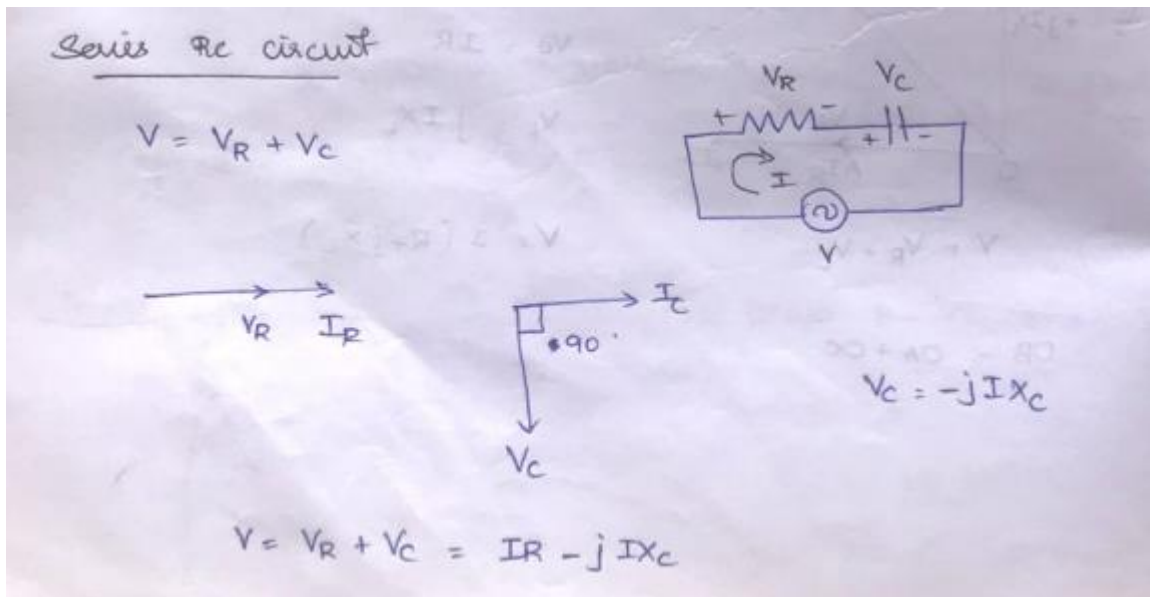 Series Rc circuit
V = VR + VC
VR VC
+ - + -
I
V
VR IR
IC
90°
VC = -jIXC
VC
V = VR + VC = IR - jIXC